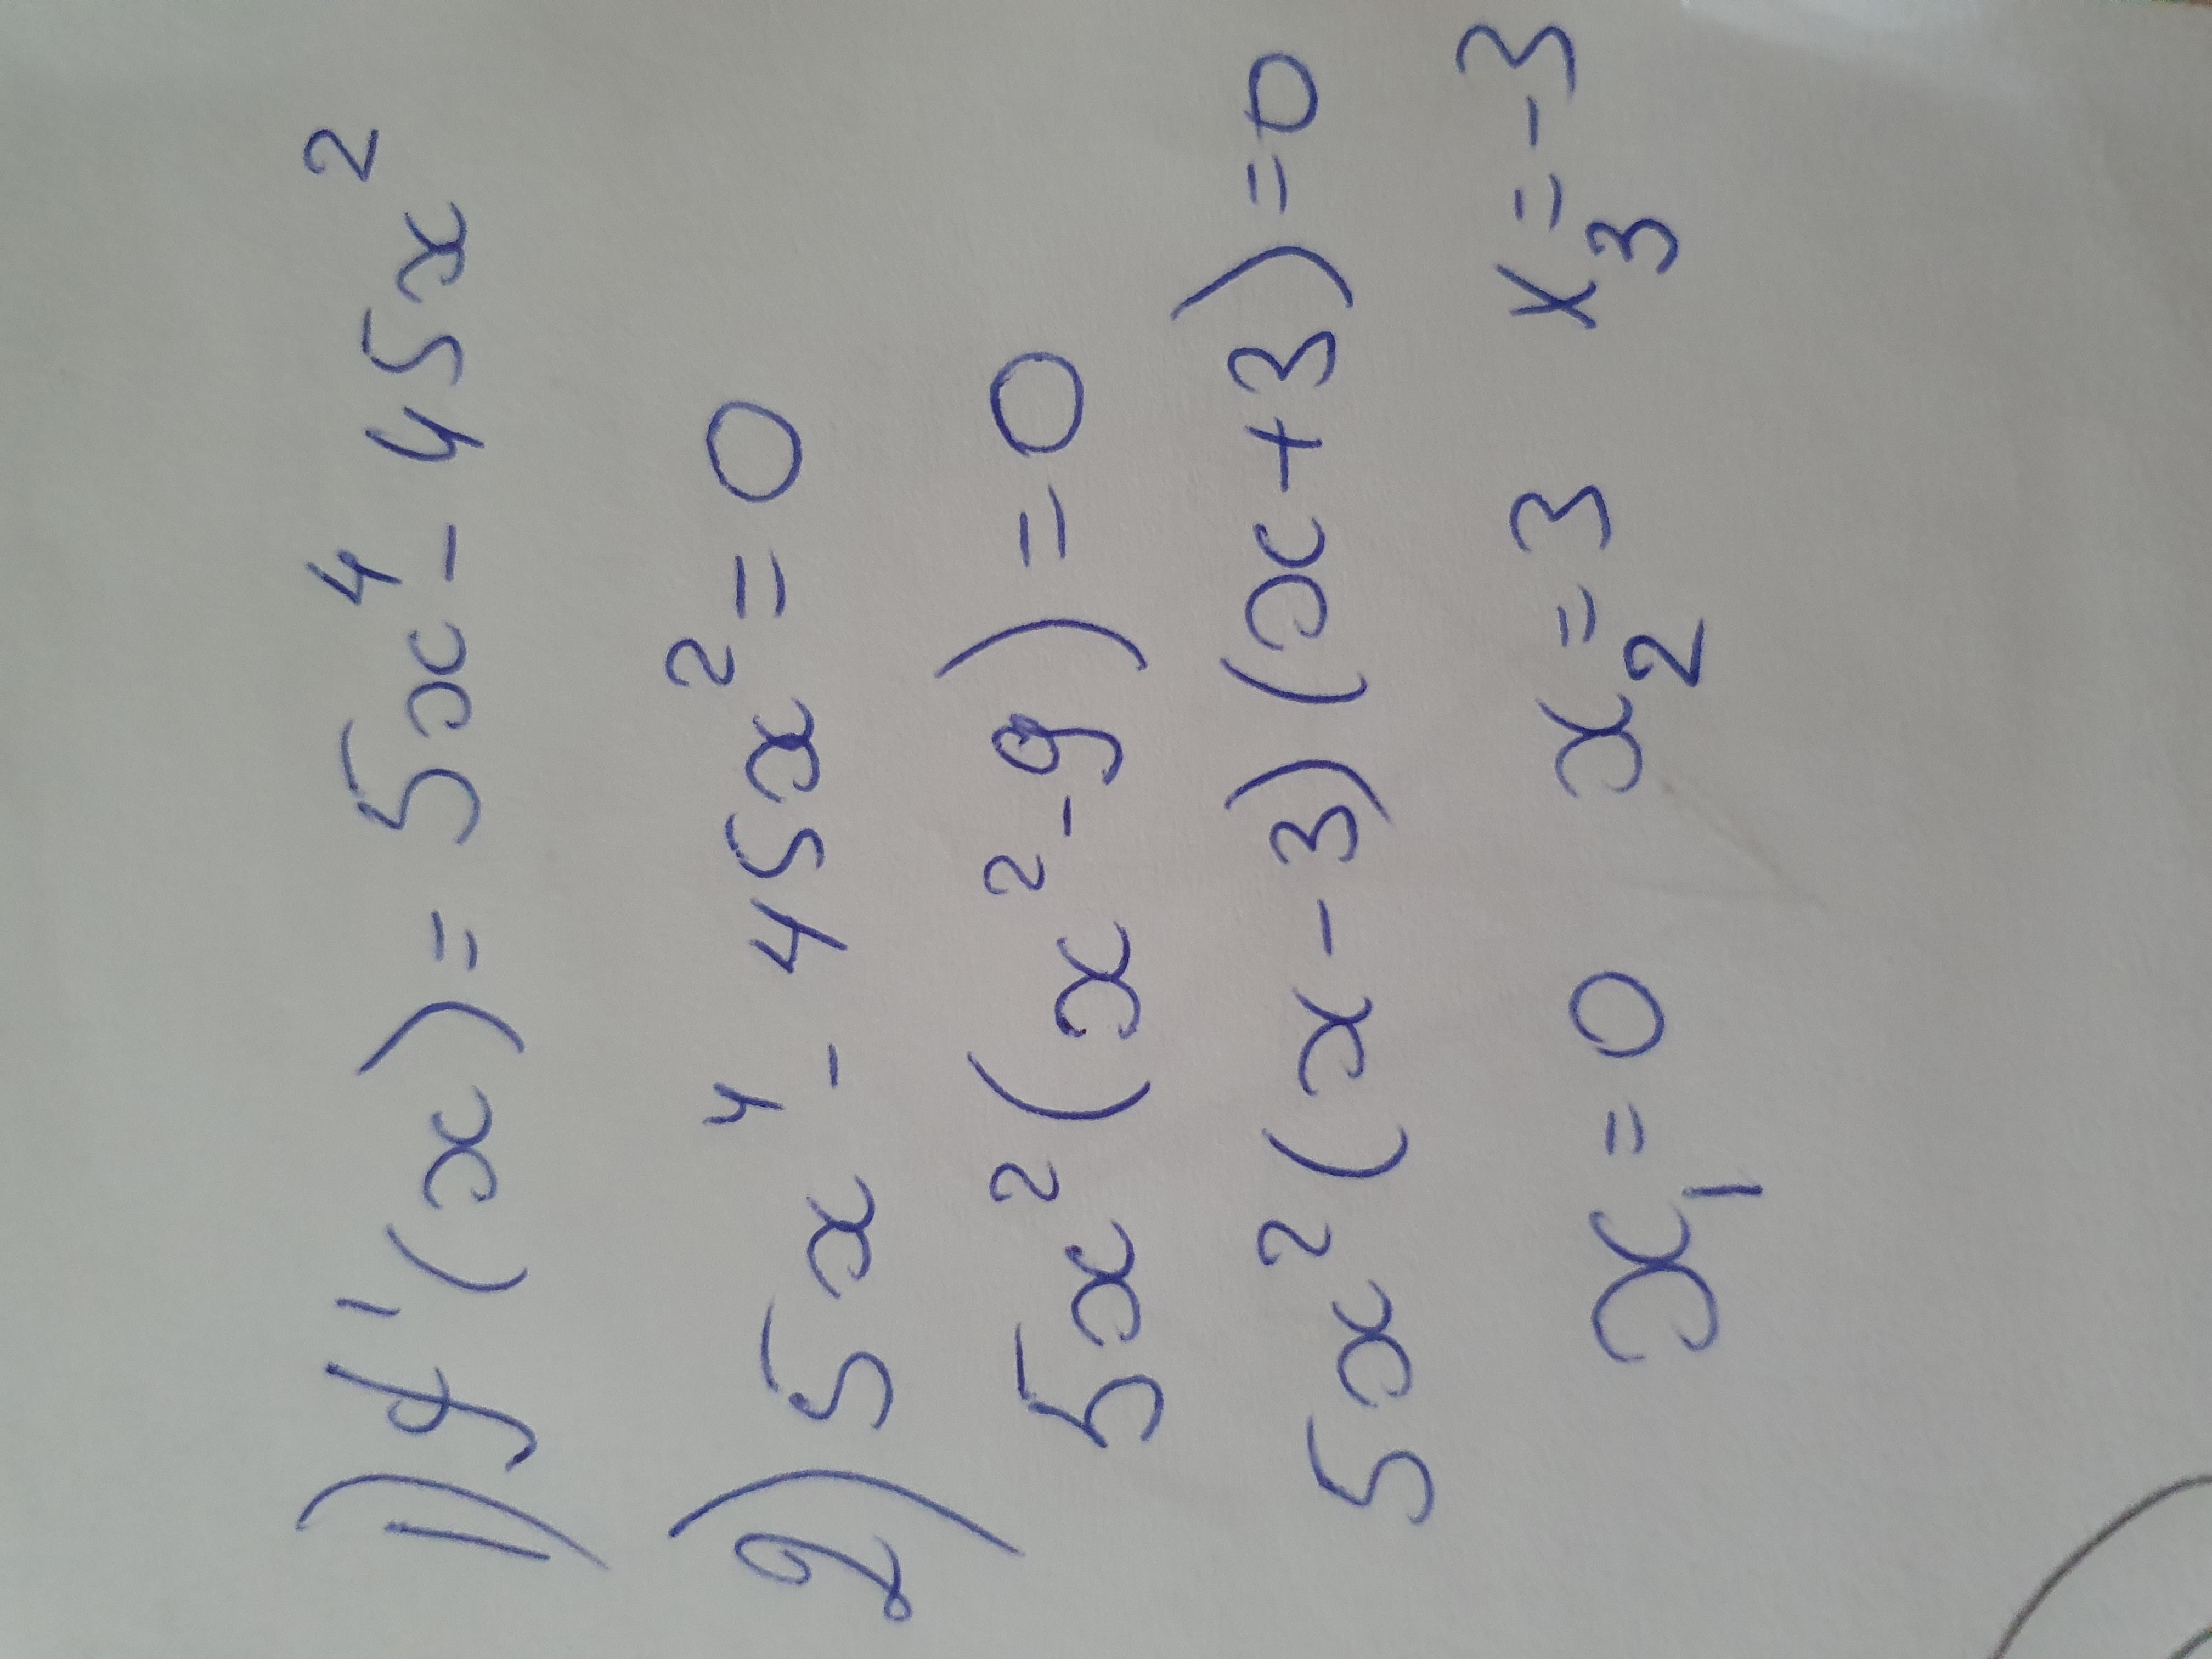 1) y'(x) = 5x⁴ - 45x²
2) 5x⁴ - 45x² = 0
5x²(x² - 9) = 0
5x²(x - 3)(x + 3) = 0
x₁ = 0 x₂ = 3 x₃ = -3